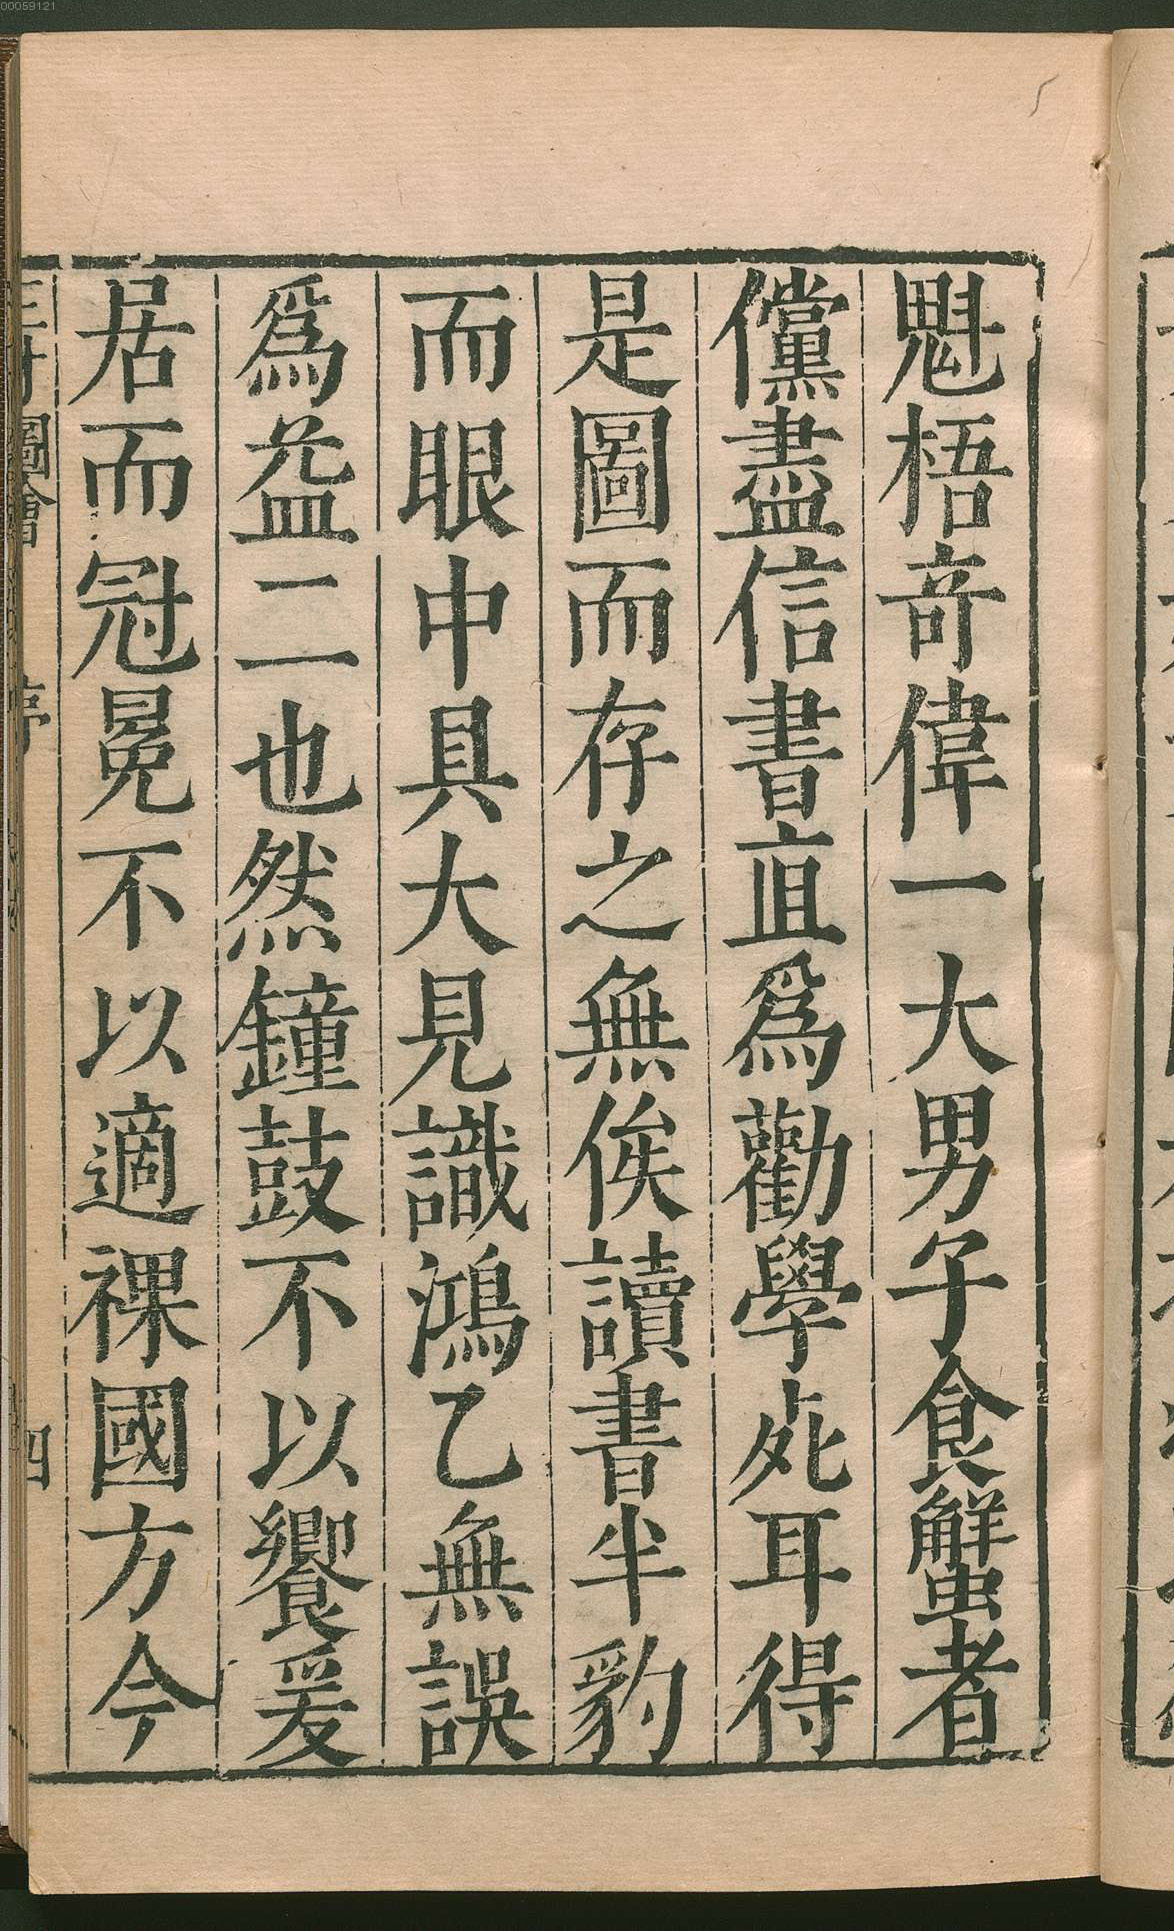 00059121
魁梧奇偉一大男子食蟹者
儻盡信書直爲勸學死耳得
是圖而存之無俟讀書半豹
而眼中具大見識鴻乙無誤
爲益二也然鐘鼓不以饗爰
居而冠冕不以適裸國方今
三才圖會 序 四